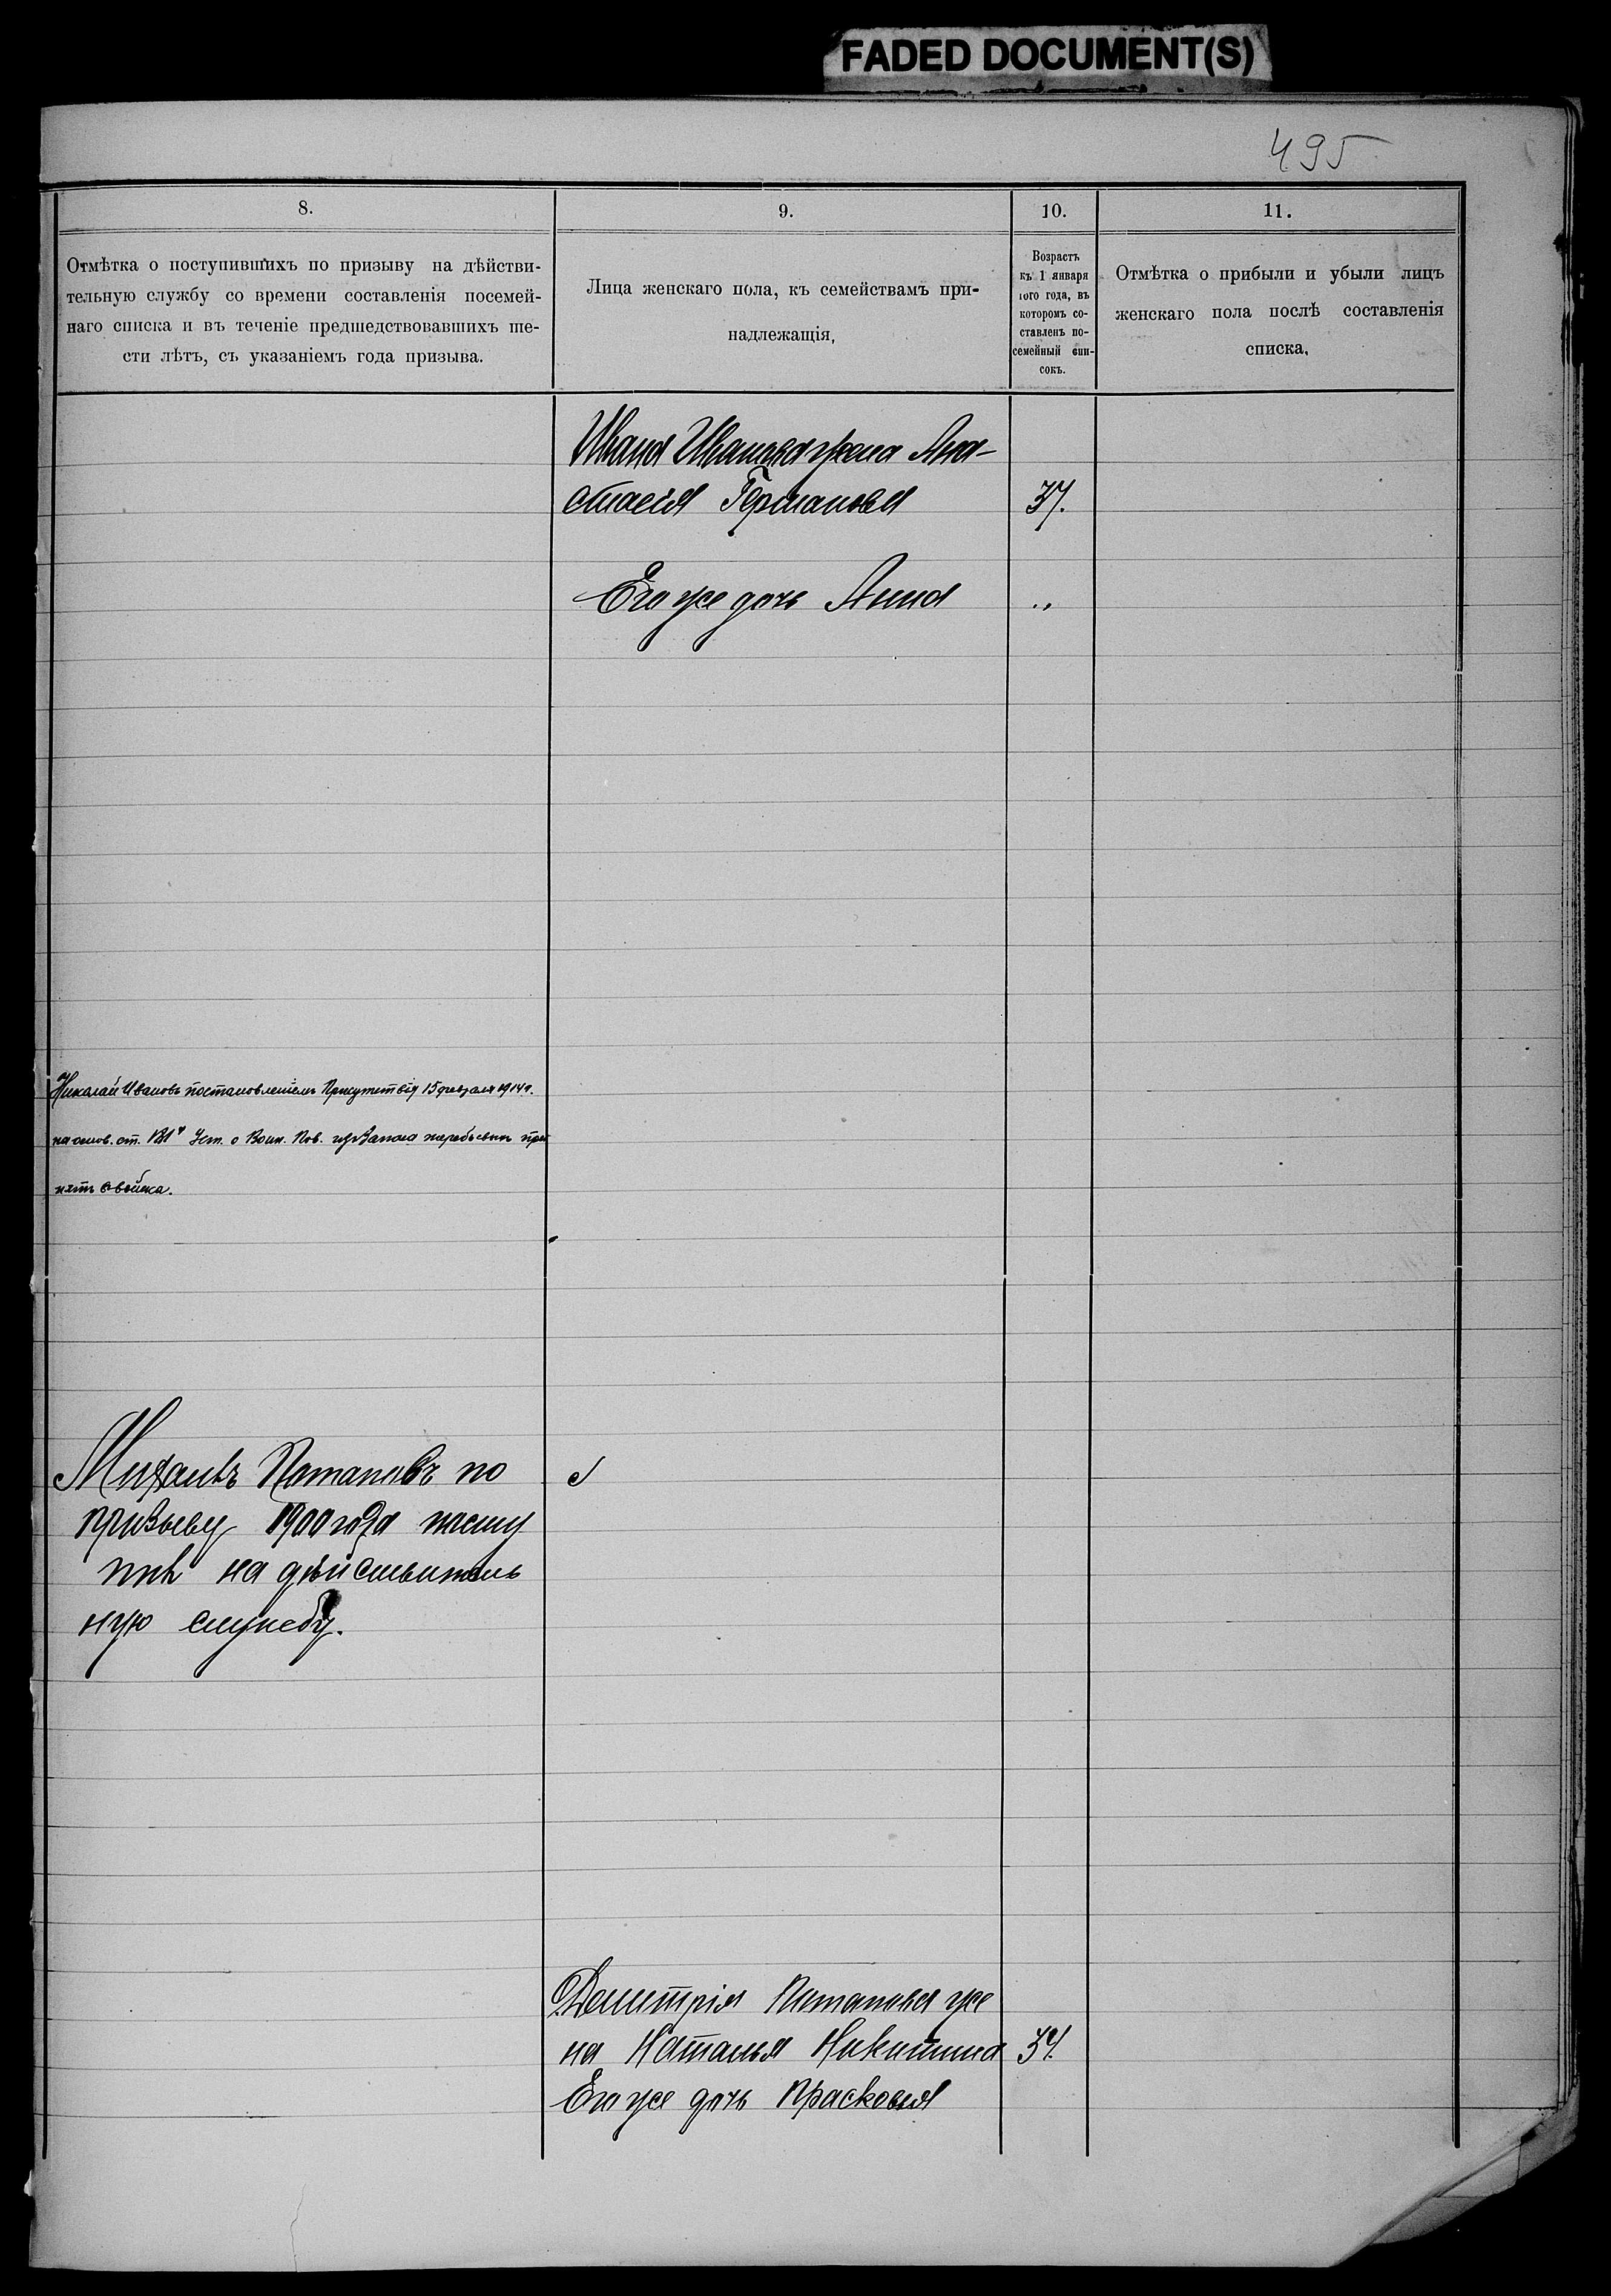 FADED DOCUMENT(S)
495
8.
9.
10.
11.
Отмѣтка о поступившихъ по призыву на дѣйстви-
тельную службу со времени составленія посемей-
наго списка и въ теченіе предшедствовавшихъ ше-
сти лѣтъ, съ указаніемъ года призыва.
Лица женскаго пола, къ семействамъ при-
надлежащія,
Возрастъ
къ 1 января
того года, въ
которомъ со-
ставленъ по-
семейный спи-
сокъ.
Отмѣтка о прибыли и убыли лицъ
женскаго пола послѣ составленія
списка,
Ивана Иванова жена Ана-
стасія Германова 37.
Его же дочь Анна "
Николай Ивановъ постановленіемъ Присутствія 15 февраля 1914 г.
на основ. ст. Уст. о Воин. Пов. жеребьевки при
нятъ в войска.
Михаилъ Потаповъ по
призыву 1900 года посту
пилъ на дѣйствитель
ную службу.
Дмитрія Потапова же
на Наталья Никитина 34.
Его же дочь Прасковья